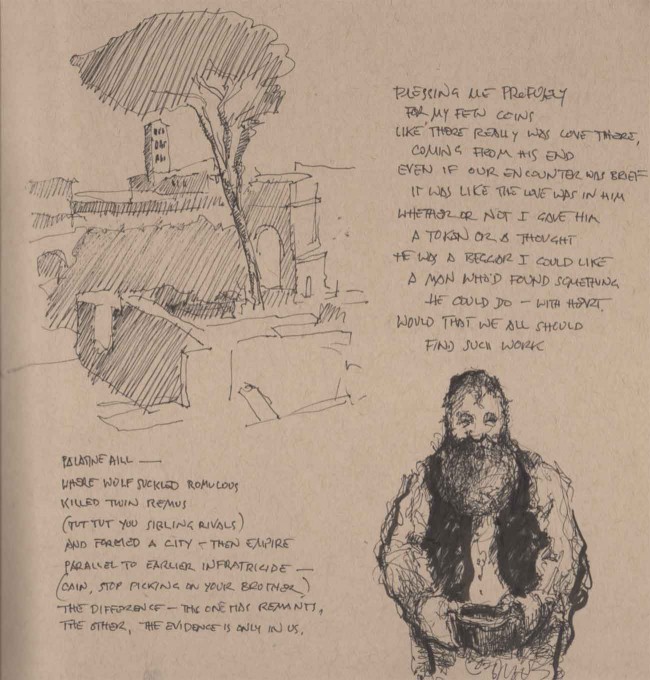 BLESSING ME PROFUSELY
FOR MY FEW COINS
LIKE THERE REALLY WAS LOVE THERE,
COMING FROM HIS END
EVEN IF OUR ENCOUNTER WAS BRIEF
IT WAS LIKE THE LOVE WAS IN HIM
WHETHER OR NOT I GAVE HIM
A TOKEN OR A THOUGHT
HE WAS A BEGGAR I COULD LIKE
A MAN WHO'D FOUND SOMETHING
HE COULD DO — WITH HEART.
WOULD THAT WE ALL SHOULD
FIND SUCH WORK
PALATINE HILL —
WHERE WOLF SUCKLED ROMULOUS
KILLED TWIN REMUS
(TUT TUT YOU SIBLING RIVALS)
AND FORMED A CITY – THEN EMPIRE
PARALLEL TO EARLIER INFRATRICIDE —
(CAIN, STOP PICKING ON YOUR BROTHER)
THE DIFFERENCE – THIS ONE HAS REMANTS,
THE OTHER, THE EVIDENCE IS ONLY IN US.